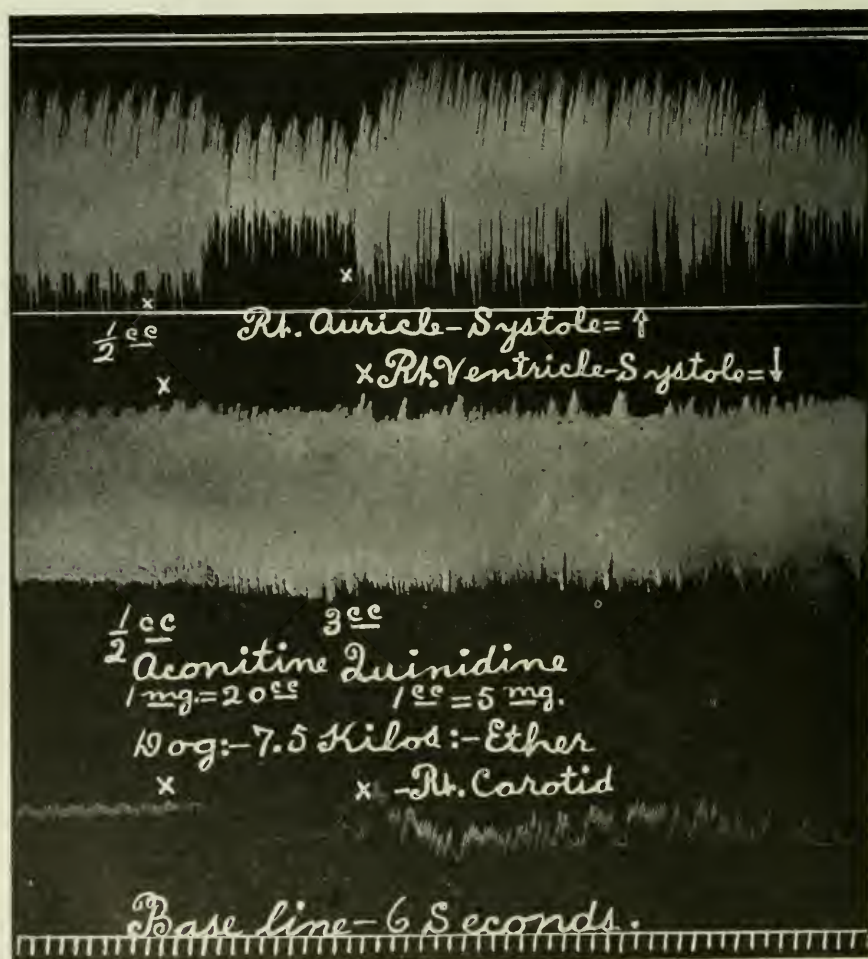 x
x
½ cc Rt. Auricle-Systole=↑
x x Rt. Ventricle-Systole=↓
½ cc 3 cc
Aconitine Quinidine
1 mg.=20 cc 1 cc=5 mg.
Dog:-7.5 Kilos:-Ether
x x -Rt. Carotid
Base line-6 Seconds.